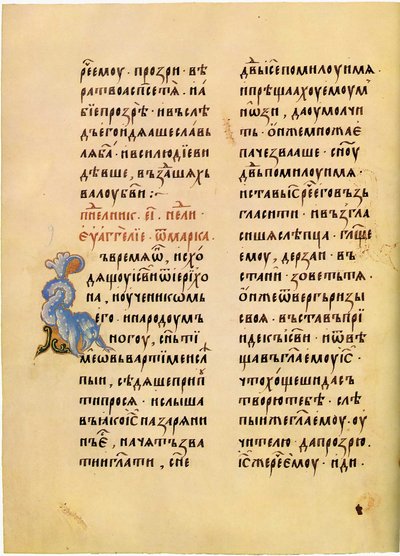 рече емоу · прозри · вѣ
ра твоа спсе тѧ · и а
бие прозрѣ · и въ слѣ
дъ его идѧаше славѧ
лѧ ба҃ · и вси людие ви
дѣвше , въздашѧ хъ
валоу б҃ви :
п҃нелник · е҃і · нели
еуаггелие · ѿ марка ·
ъ время ѿн , исхо
дѧщоу іс҃ви ѿ иерихо
на , и оученикомъ
его · и народоум
ногоу , сн҃ъ ти
меѡвъ вартимеи сле
пыи , сѣдѧше при п
ти просѧ · и слыша
въ ꙗко іс҃ назарѧни
нъ е҃ , начѧтъ зва
ти и гл҃ати , сн҃е
дв҃ыі҃се помилоуимѧ ·
и прѣщаахоу емоу м
нѡзи , да оумолчи
ть · он же множае
паче зваше · сн҃оу
дв҃ъ помилоуимѧ ·
и ставъ іс҃ рече его възъ
гласити · и възгла
сишѧ слѣпца · гл҃юще
емоу , дерзаи въ
стани зоветь тѧ ·
он же ѿвергъ ризы
своѧ · въставъ прі
иде къ іс҃ви · и ѿвѣ
щавъ гл҃а емоу іс҃ ·
что хощеши да сѧ
творю тебѣ · слѣ
пыи же гл҃а емоу · оу
чителю да прозрю ·
іс҃ же рече емоу · иди ·